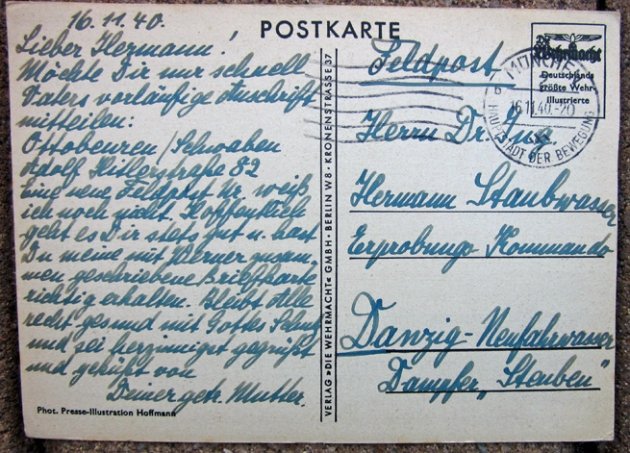 POSTKARTE
16.11.40.
Lieber Hermann!
Möchte Dir nur schnell
Vaters vorläufige Anschrift
mitteilen:
Ottobeuren/Schwaben
Adolf Hitlerstraße 82
Eine neue Feldpost Nr. weiß
ich noch nicht. Hoffentlich
geht es Dir stets gut u. hast
Du meine mit Werner zusam-
men geschriebene Briefkarte
richtig erhalten. Bleibt Alle
recht gesund mit Gottes Schutz
und sei herzinnigst gegrüßt
und geküßt von
Deiner getr. Mutter.
Phot. Presse-Illustration Hoffmann
VERLAG »DIE WEHRMACHT« GMBH · BERLIN W 8 · KRONENSTRASSE 37
Die Wehrmacht
Deutschlands
größte Wehr-
illustrierte
MÜNCHEN
16.11.40.-20
HAUPTSTADT DER BEWEGUNG
Feldpost
Herrn Dr. Ing.
Hermann Staubwasser
Erprobungs Kommando
Danzig-Neufahrwasser
Dampfer "Steuben"